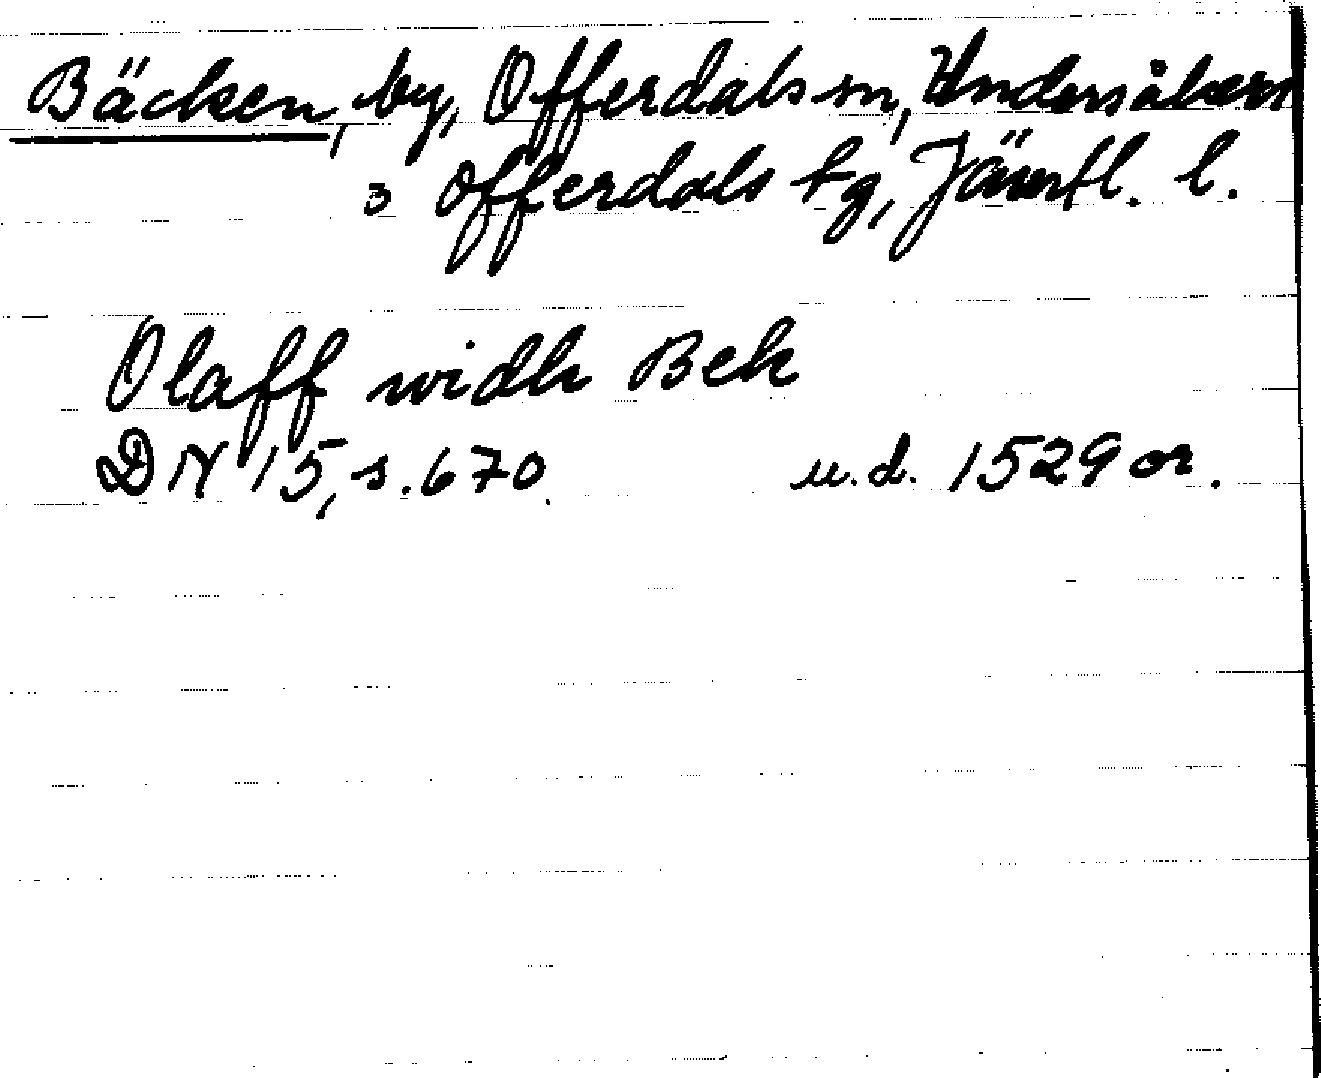 Bäcken, by, Offerdals sn, Undersåkers
o Offerdals tg, Jämtl. l.
Olaff widh Bek
DN 15, s. 670. u.d. 1529 or.